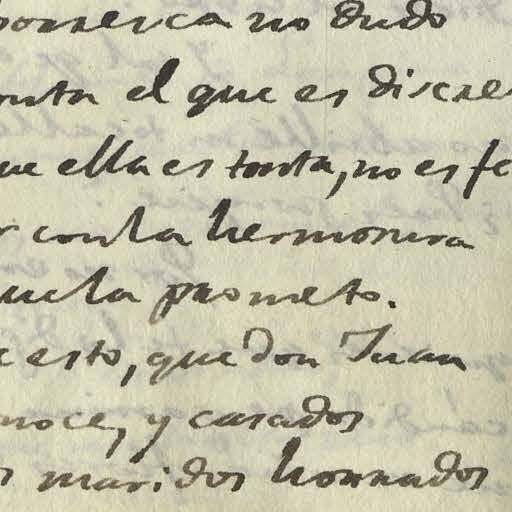 no dudo
onta el que es discre
ue ella es tonta, no es fe
r con la hermosura
que la prometo.
e esto, que Don Juan
noce, y casados
s maridos honrrados